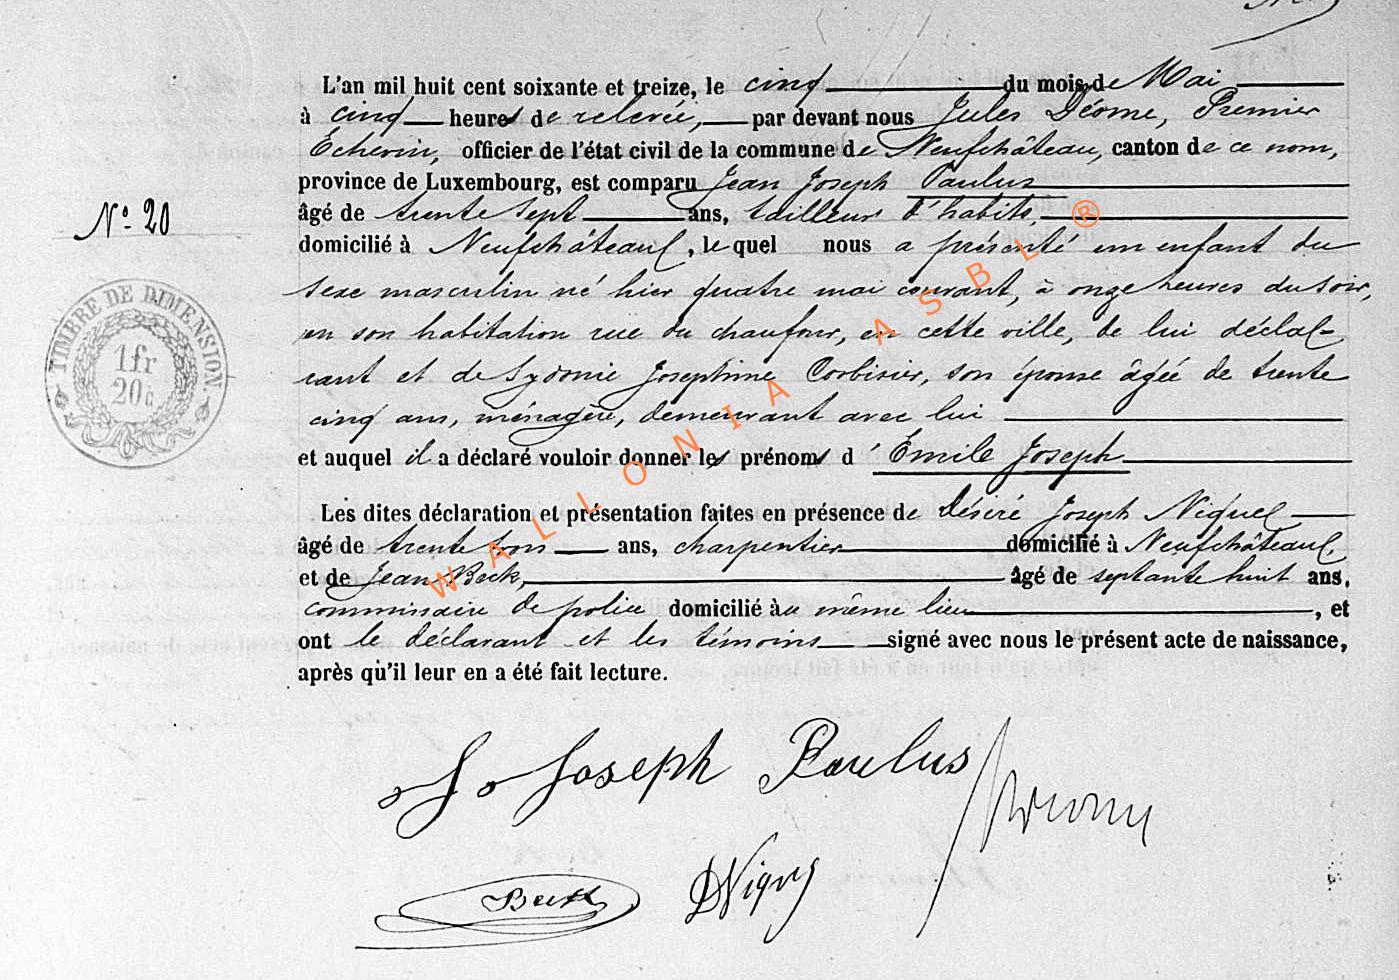 L'an mil huit cent soixante et treize, le cinq du mois de Mai
à cinq heures de relevée, par devant nous Jules Déome, Premier
Echevin, officier de l'état civil de la commune de Neufchâteau, canton de ce nom,
province de Luxembourg, est comparu Jean Joseph Paulus
âgé de trente sept ans, tailleur d'habits
N° 20
domicilié à Neufchâteau, lequel nous a présenté un enfant du
sexe masculin né hier quatre mai courant, à onze heures du soir,
en son habitation rue du chaufour, en cette ville, de lui décla-
rant et de Sydonie Josephine Corbisier, son épouse âgée de trente
cinq ans, ménagère, demeurant avec lui
et auquel il a déclaré vouloir donner les prénoms d'Emile Joseph
TIMBRE DE DIMENSION.
1fr
20c
Les dites déclaration et présentation faites en présence de Désiré Joseph
âgé de trente trois ans, charpentier domicilié à Neufchâteau,
et de Jean Beck, âgé de septante huit ans,
commissaire de police domicilié au même lieu, et
ont le déclarant et les témoins signé avec nous le présent acte de naissance,
après qu'il leur en a été fait lecture.
WALLONIA ASBL ®
J. Joseph Paulus
Beck